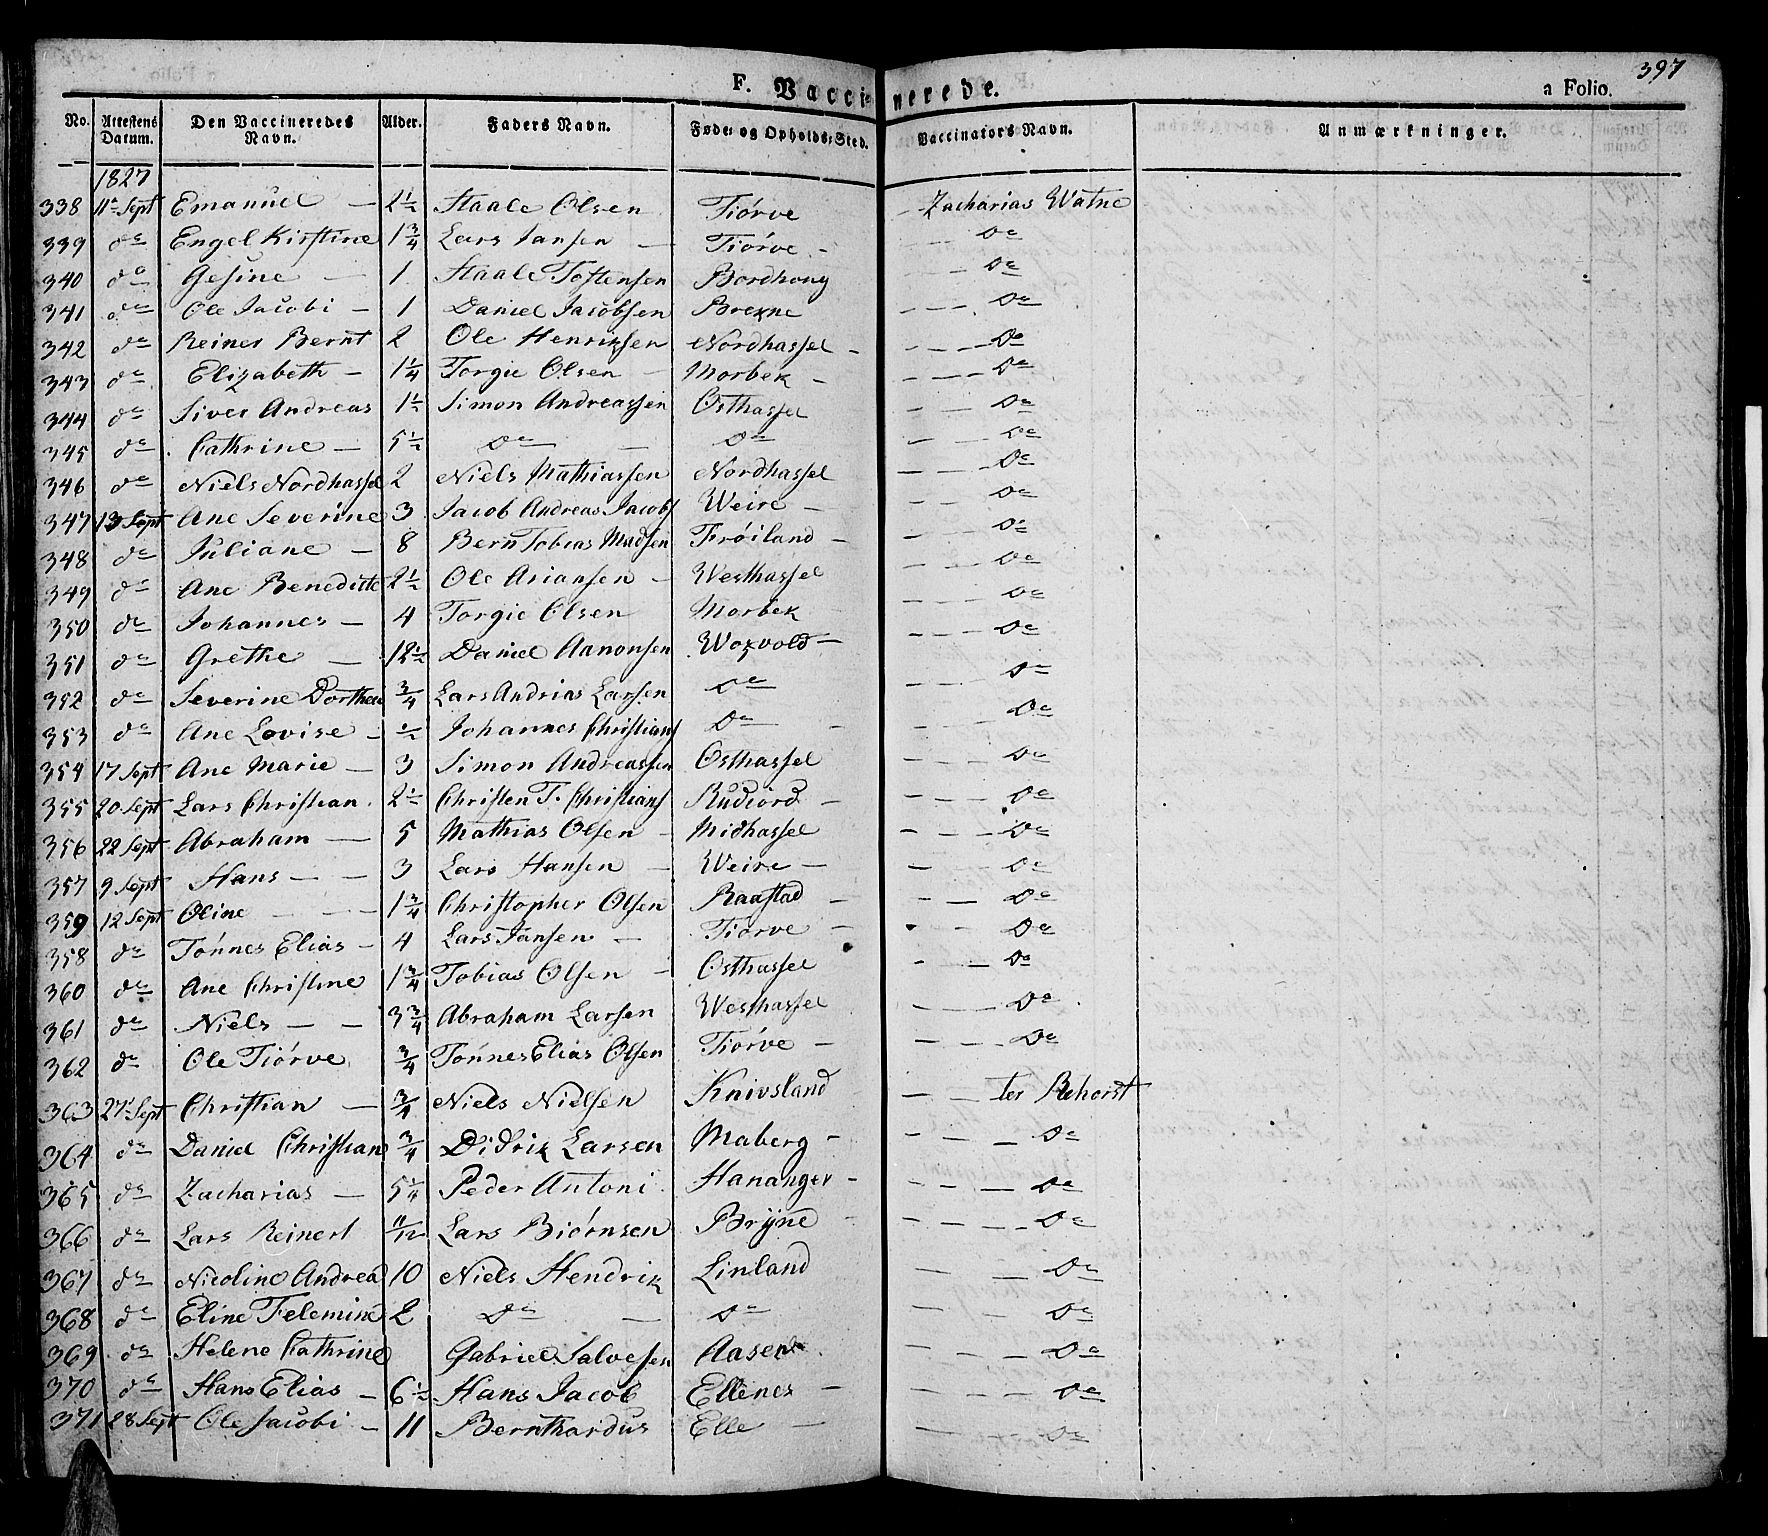 397
F. Vaccinerede. a Folio.
No. Attestens Datum. Den Vaccineredes Navn. Alder. Faders Navn. Føde- og Opholds-Sted. Vaccinators Navn. Anmærkninger.
1827
338 11te Sept Emanuel — 2½ Staale Olsen Tiørve — Zacharias Watne
339 do Engel Kirstine 1¾ Lars Jansen — Tiørve — — do
340 do Gesine — 1 Staale Tostensen Bordhoug — do
341 do Ole Jacobi — 1 Daniel Jacobsen Brekne — — — do
342 do Reiner Bernt 2 Ole Henriksen Nordhassel — — — — do
343 do Elizabeth — 1¼ Torgie Olsen — Morbek — — — — do
344 do Siver Andreas 1½ Simon Andreassen Østhassel — — do
345 do Cathrine — 5½ do — do — — do
346 do Niels Nordhassel 2 Niels Mathiassen Nordhassel — — — do
347 13 Sept Ane Severine 3 Jacob Andreas Jacobs Weire — — — do
348 do Juliane — 8 Bern Tobias Madsen Frøiland — — — do
349 do Ane Benedicte 2½ Ole Ariansen — Westhassel — — do
350 do Johannes — 4 Torgie Olsen Morbek — — — do
351 do Grethe — 12½ Daniel Aanonsen Woxvold — — — — do
352 do Severine Dorthea ¾ Lars Andrias Larsen do — — — do
353 do Ane Lovise — ½ Johannes Christians do — — — — do
354 17 Sept Ane Marie — 3 Simon Andreassen Østhassel — — — do
355 20 Sept Lars Christian 2½ Christen T. Christians Rudiord — — — — do
356 22 Sept Abraham — 5 Mathias Olsen — Midhassel — — — do
357 9 Sept Hans — — 3 Lars Hansen — Weire — — — — do
359 12 Sept Oline — — — 1¾ Christopher Olsen Raastad — — — do
358 do Tønnes Elias — 4 Lars Jansen — Tiørve — — do
360 do Ane Christine 1¾ Tobias Olsen — Østhassel — — do
361 do Niels — — 3¾ Abraham Larsen Westhassel — — — do
362 do Ole Tiørve ¾ Tønnes Elias Olsen Tiørve — — — — do
363 27de Sept Christian — ¾ Niels Nielsen Knivsland — — ter Rehorst
364 do Daniel Christian ¾ Didrik Larsen Maberg — — — — do
365 do Zacharias — 5¼ Peder Antoni Hananger — — — — do
366 do Lars Reinert 11/12 Lars Biørnsen Brÿne — — — — do
367 do Nicoline Andrea 10 Niels Hendrik Linland — — — do
368 do Eline Felemine 2 do — do — — — do
369 do Helene Cathrine Gabriel Salvesen Aasen — — — do
370 do Hans Elias — 6½ Hans Jacob Ellenes — — — — do
371 28 Sept Ole Jacobi — 11 Bernthardus Elle — — — — do